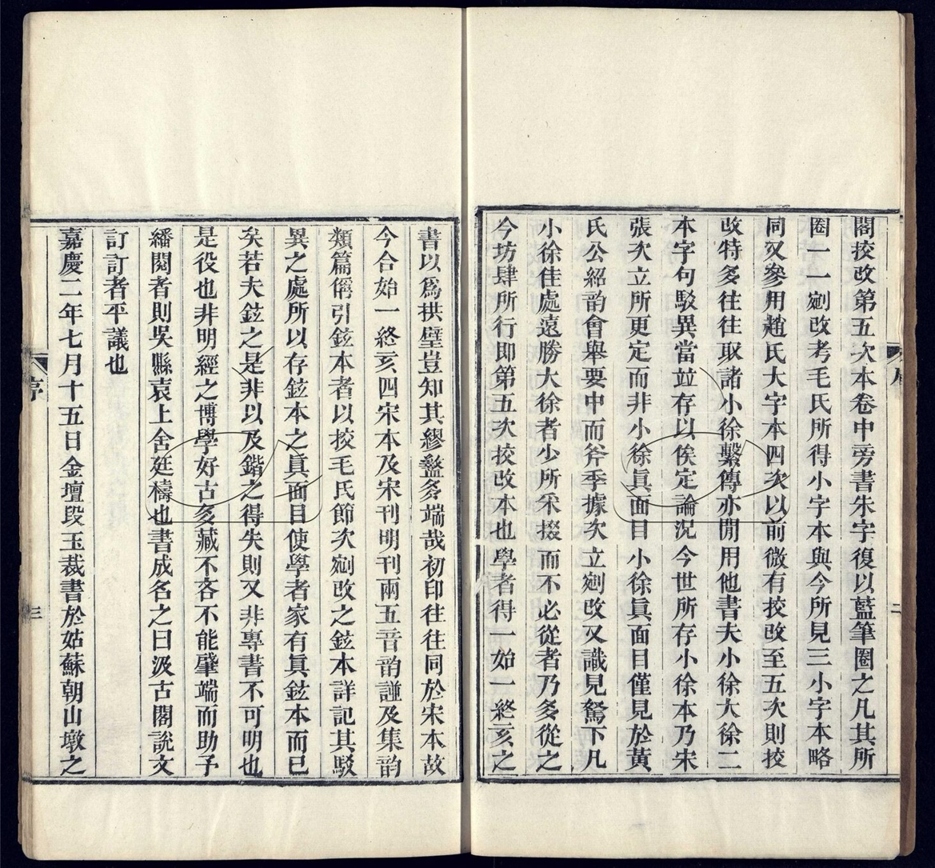 閣挍改第五次本卷中旁書朱字復以藍筆圈之凡其所
圈一一剜改考毛氏所得小字本與今所見三小字本略
同又參用趙氏大字本四次以前微有挍改至五次則挍
改特多往往取諸小徐繫傳亦閒用他書夫小徐大徐二
本字句駁異當竝存以俟定論況今世所存小徐本乃宋
張次立所更定而非小徐眞面目小徐眞面目僅見於黃
氏公紹韵會舉要中而斧季據次立剜改又識見駑下凡
小徐佳處遠勝大徐者少所采掇而不必從者乃多從之
今坊肆所行即第五次挍改本也學者得一始一終亥之
書以爲拱璧豈知其繆盭多端哉初印往往同於宋本故
今合始一終亥四宋本及宋刊明刊兩五音韵譜及集韵
類篇偁引鉉本者以挍毛氏節次剜改之鉉本詳記其駁
異之處所以存鉉本之眞面目使學者家有眞鉉本而已
矣若夫鉉之是非以及鍇之得失則又非專書不可明也
是役也非明經之博學好古多藏不吝不能肇端而助予
繙閱者則吳縣袁上舍廷檮也書成名之曰汲古閣說文
訂訂者平議也
嘉慶二年七月十五日金壇段玉裁書於姑蘇朝山墩之
序
三